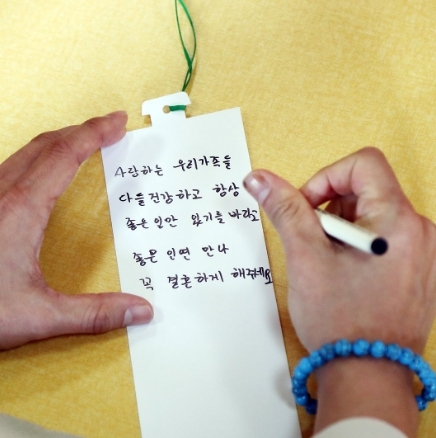 사랑하는 우리가족들
다들건강하고 항상
좋은일만 있기를 바라고
좋은 인연 만나
꼭 결혼하게 해주세요